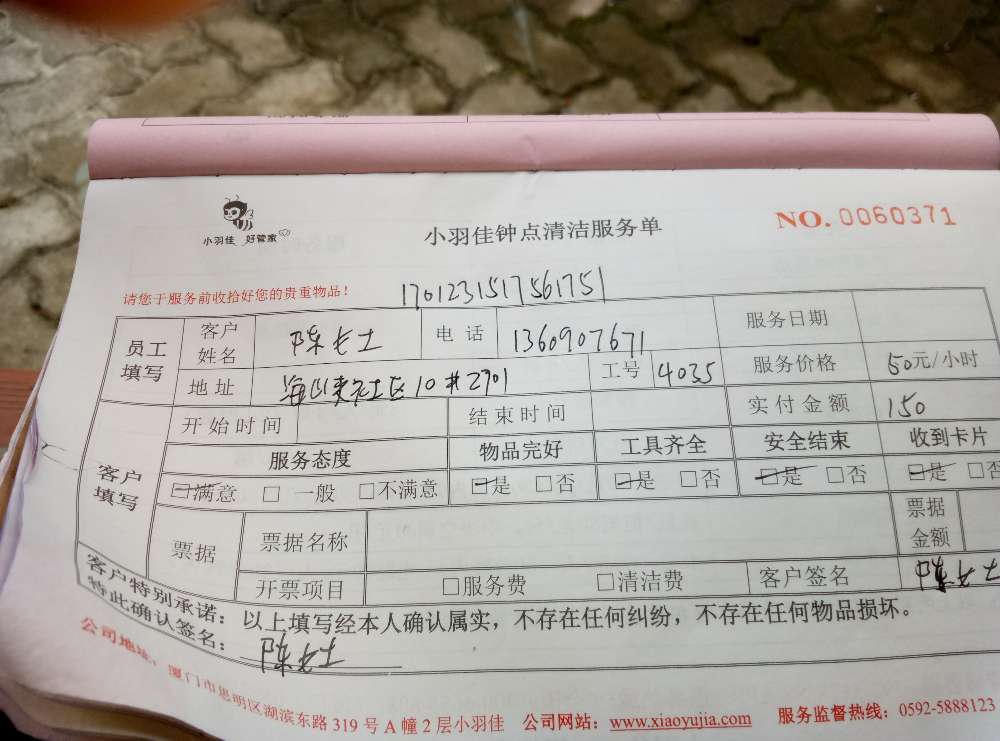 小羽佳 好管家
小羽佳钟点清洁服务单
NO. 0060371
请您于服务前收拾好您的贵重物品！
1701231517561751
员工填写 客户姓名 陈女士 电话 1360907671 服务日期
地址 10#2701 工号 4035 服务价格 50元/小时
客户填写 开始时间 结束时间 实付金额 150
服务态度 物品完好 工具齐全 安全结束 收到卡片
□满意 □一般 □不满意 □是 □否 □是 □否 □是 □否 □是 □否
票据 票据名称 票据金额
开票项目 □服务费 □清洁费 客户签名 陈女士
客户特别承诺：以上填写经本人确认属实，不存在任何纠纷，不存在任何物品损坏。
特此确认签名：陈女士
公司地址：厦门市思明区湖滨东路319号A幢2层小羽佳 公司网站：www.xiaoyujia.com 服务监督热线：0592-5888123